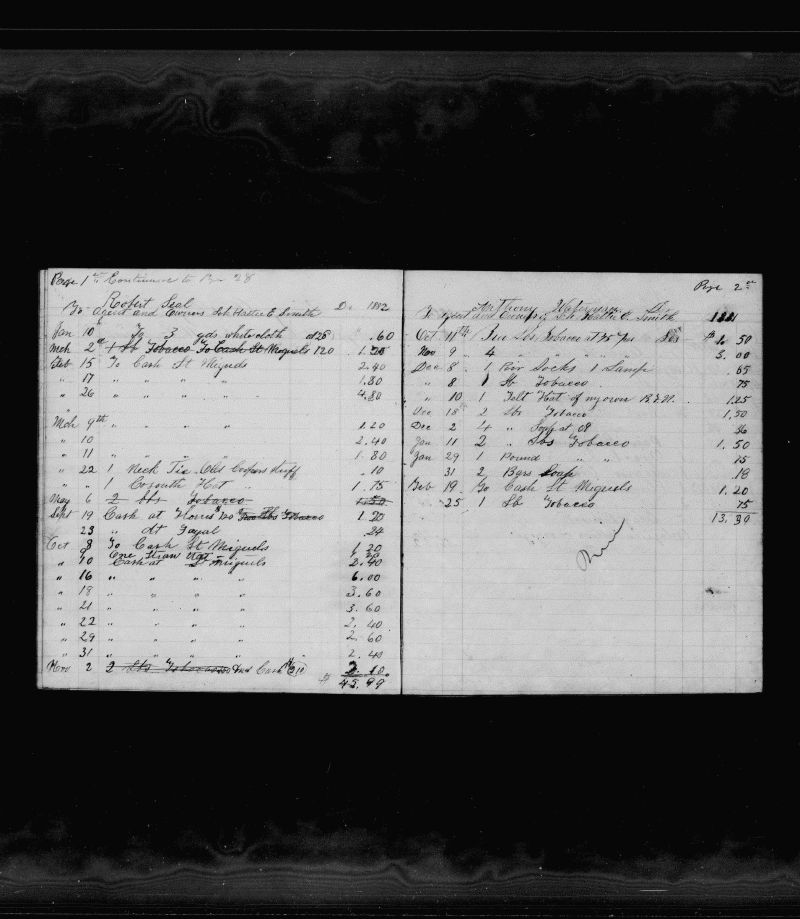 Page 1st Continued to Page 28
Robert Seal
To Agent and Owners Sch Hattie E Smith Dr 1882
Jan 10 To 3 yds white cloth at 28 .60
Mch 2d 1 Lb Tobacco To Cash St Miguels 120 1.20
Feb 15 To Cash St Miguels 2.40
" 17 " " " " 1.80
" 26 4.80
Mch 9th " " " 1.20
" 10 2.40
" 11 " " " " 1.80
" 22 1 Neck Tie Coopers stuff .10
" " 1 Hat 1.75
May 6 2 Lbs Tobacco 1.50
Sept 19 Cash at 120 Two Lbs Tobacco 1.20
23 " At Fayal 24
Oct 8 To Cash St Miguels 1.20
" 9 One Straw Hat
" 10 Cash at St Miguels 2.40
" 16 " " " " 6.00
" 18 " " " " 3.60
" 21 " " " " 3.60
" 22 " " " " 2.40
" 29 " " " " 2.60
" 31 " " " " 2.40
Nov 2 2 Lbs Tobacco And Cash 2.10
$ 45.99
Page 2nd
Anthony
To Agent and Owners Sch Hattie E Smith Dr 1881
Oct 11th Two Lbs Tobacco at 75 per Lb $ 1.50
Nov 9 4 " " " 3.00
Dec 8 1 Pair Socks 1 Lamp .65
" 8 1 Lb Tobacco 75
" 10 1 Felt Hat of my own 1.25
Dec 18 2 Lbs Tobacco 1.50
Dec 2 4 " Soap at 08 36
Jan 11 2 " Lbs Tobacco 1.50
Jan 29 1 Pound " " 75
31 2 Bars Soap .18
Feb 19 To Cash St Miguels 1.20
" 25 1 Lb Tobacco 75
13.39